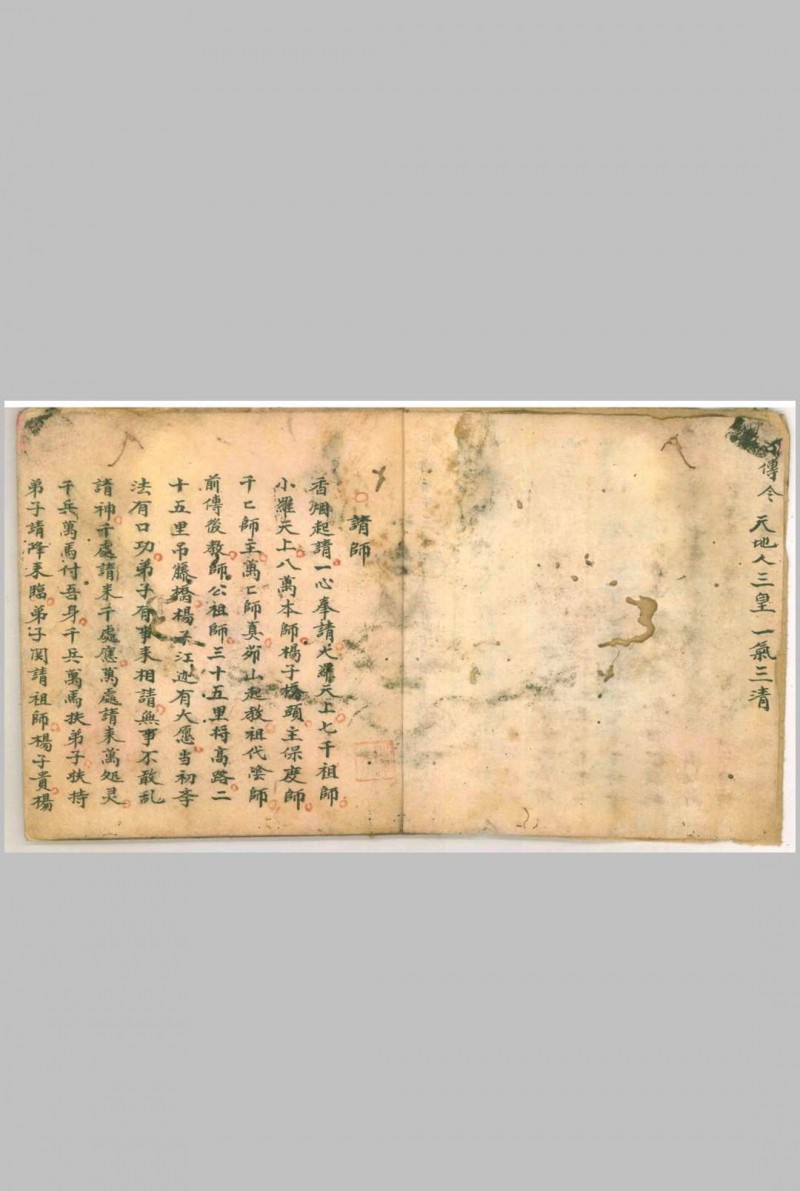 傳令 天地人三皇 一氣三清
請師
香烟起請一心奉請大羅天上七千祖師
小羅天上八萬本師楊子橋頭主保度師
千匕師主萬匕師真茆山起教祖代陰師
前傳後教師公祖師三十五里將高路二
十五里吊藤橋楊子江边有大愿當初李
法有口功弟子有事来相請無事不敢乱
請神千處請来千處應萬處請来萬処灵
千兵萬馬付吾身千兵萬馬扶弟子扶持
弟子請降来臨弟子関請祖師楊子貴楊